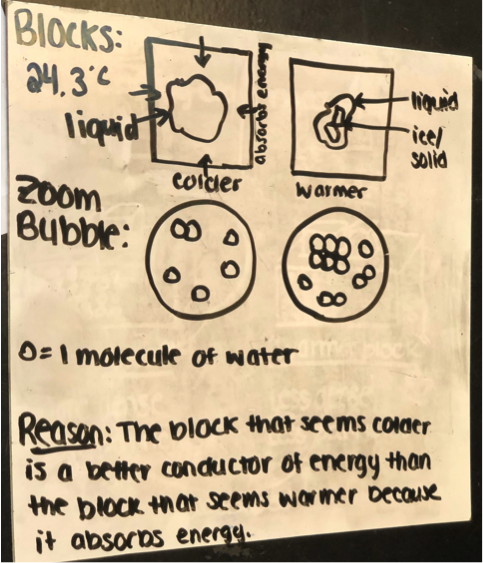 Blocks:
24.3°C
liquid
absorbs energy
colder
liquid
ice/
solid
warmer
Zoom
Bubble:
O = 1 molecule of water
Reason: The block that seems colder
is a better conductor of energy than
the block that seems warmer because
it absorbs energy.